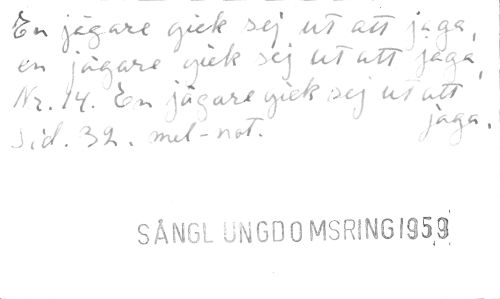 En jägare gick sej ut att jaga,
en jägare gick sej ut att jaga,
Nr. 14. En jägare gick sej ut att
jaga.
Sid. 32. mel-not.
SÅNGL UNGDOMSRING 1959